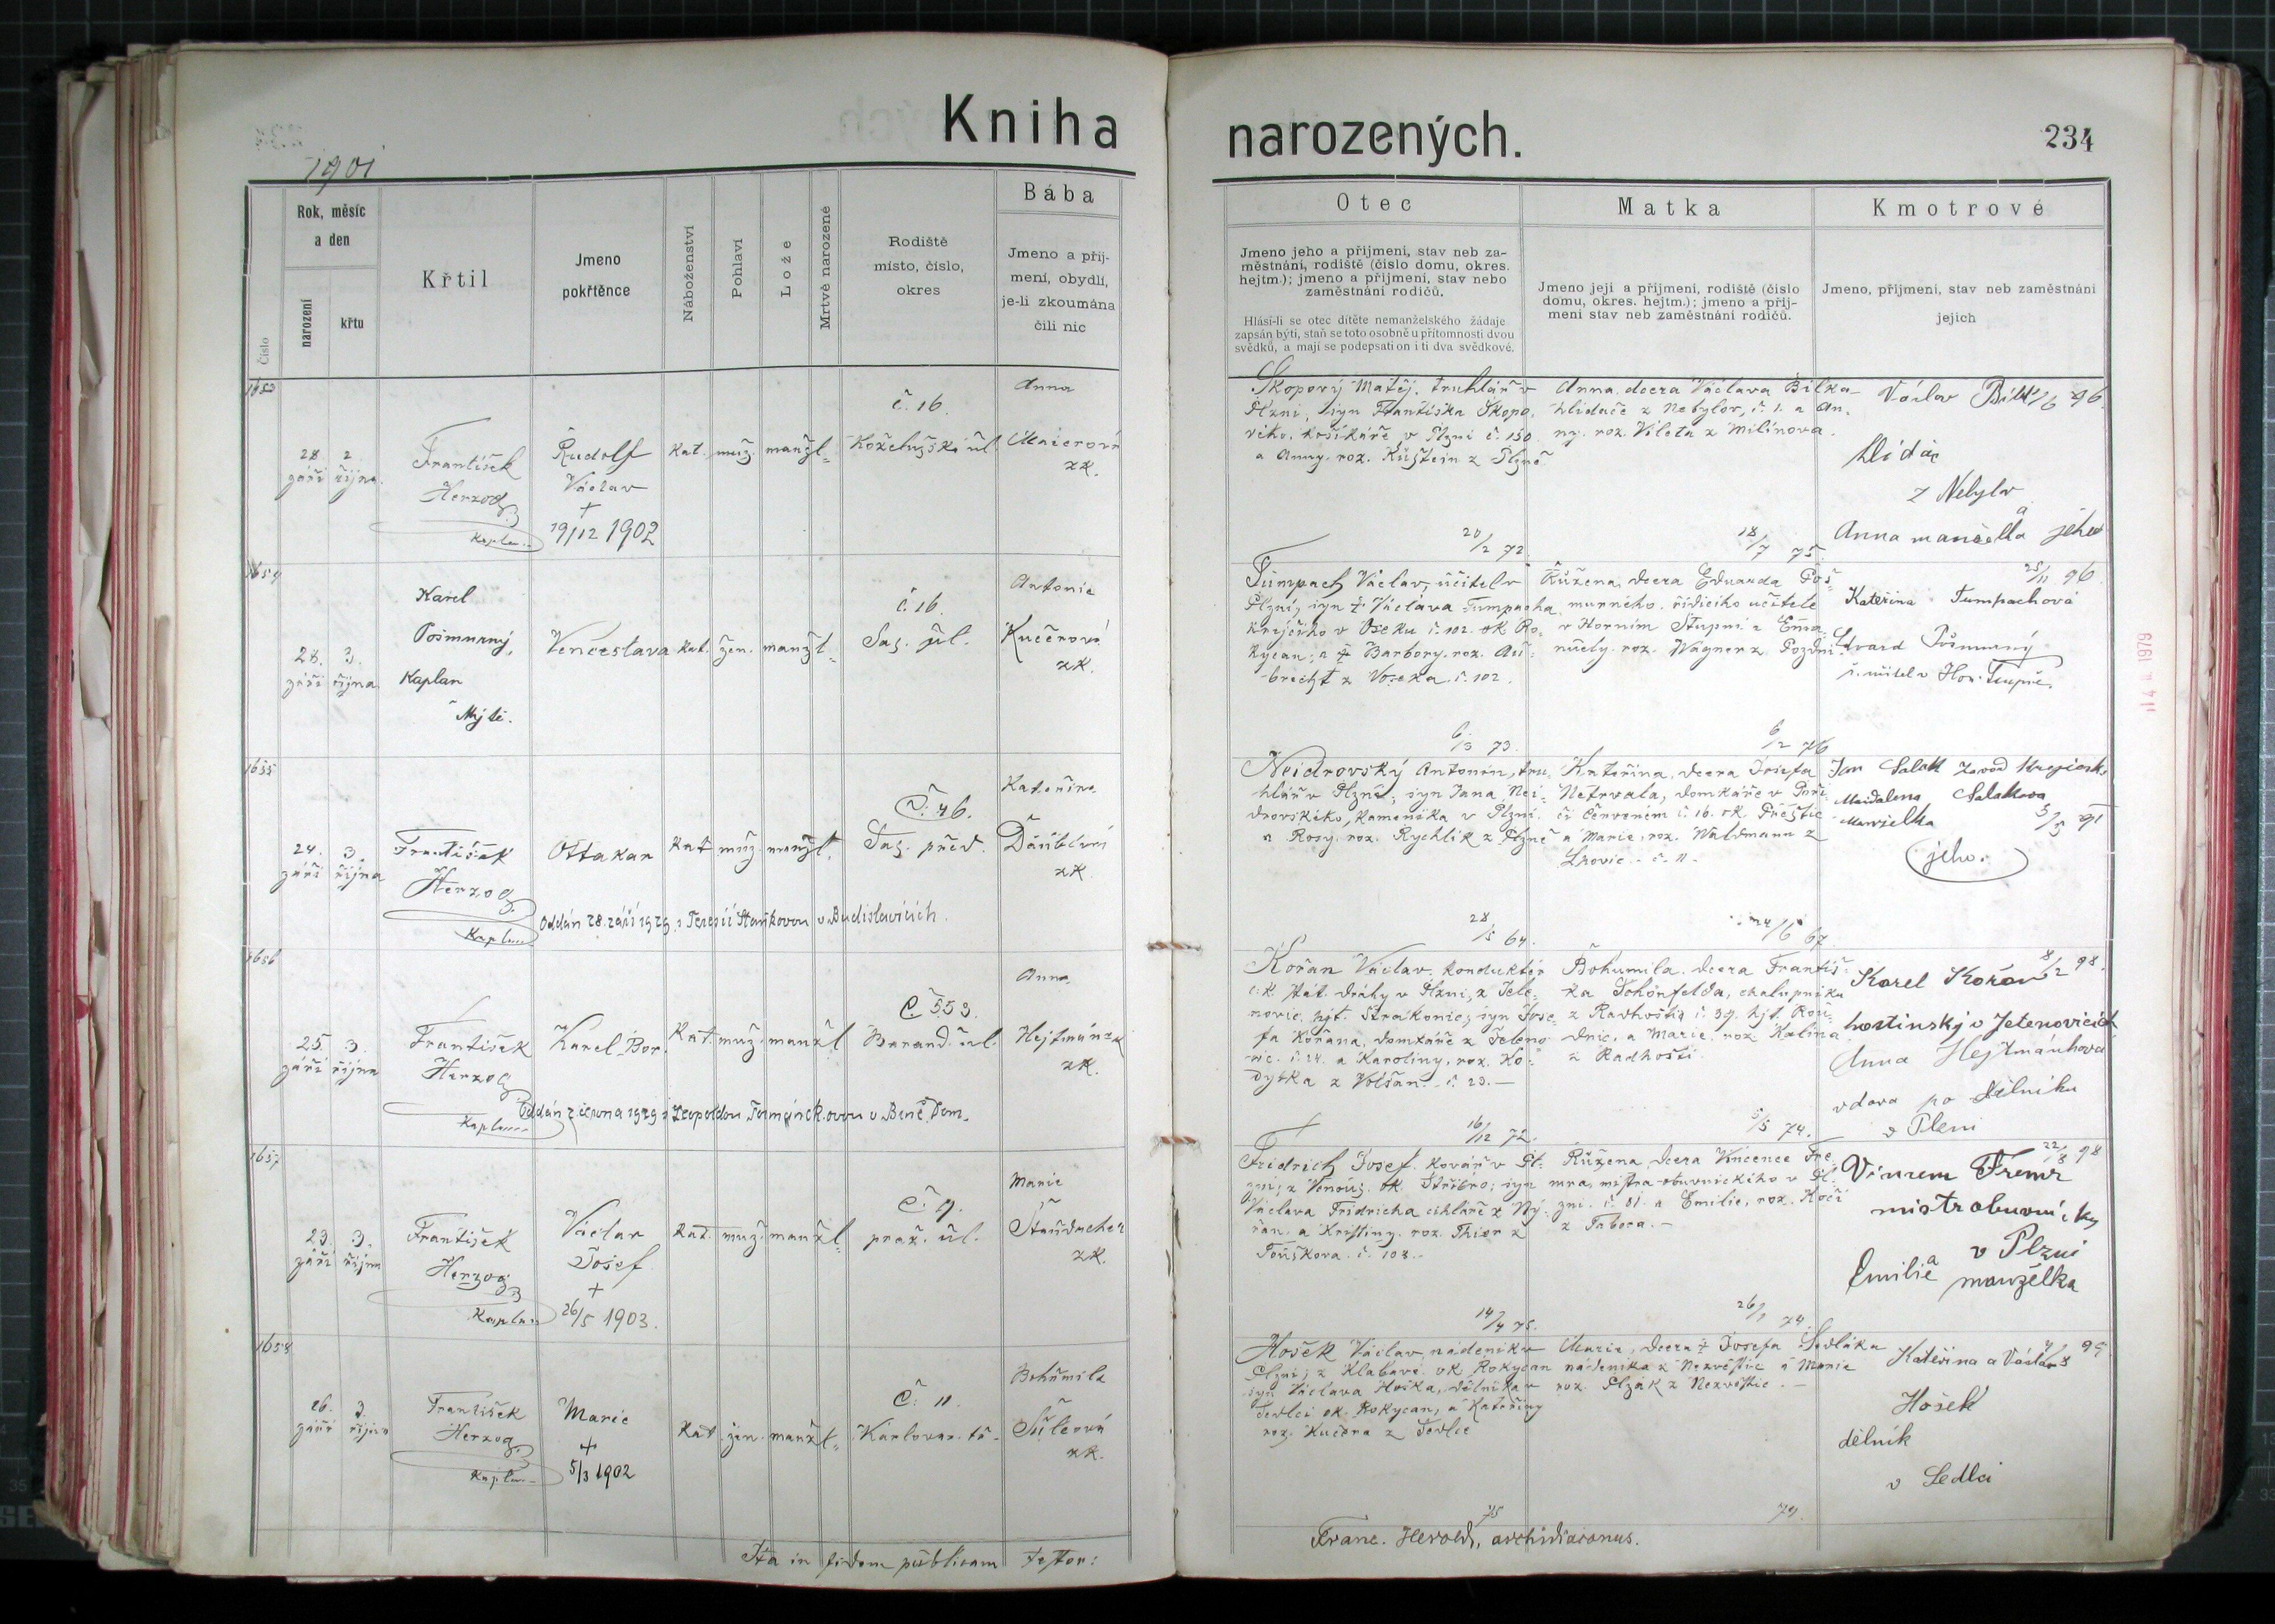 Kniha
narozených.
234
1901
Číslo
Rok, měsíc
a den
narození
křtu
Křtil
Jmeno
pokřtěnce
Náboženství
Pohlaví
Lože
Mrtvě narozené
Rodiště
místo, číslo,
okres
Bába
Jmeno a příj-
mení, obydlí,
je-li zkoumána
čili nic
Otec
Jmeno jeho a příjmení, stav neb za-
městnání, rodiště (číslo domu, okres.
hejtm.); jmeno a příjmení, stav nebo
zaměstnání rodičů.
Hlásí-li se otec dítěte nemanželského žádaje
zapsán býti, staň se toto osobně u přítomnosti dvou
svědků, a mají se podepsati on i ti dva svědkové.
Matka
Jmeno její a příjmení, rodiště (číslo
domu, okres. hejtm.); jmeno a příj-
mení stav neb zaměstnání rodičů.
Kmotrové
Jmeno, příjmení, stav neb zaměstnání
jejich
1653
28. září
2. října
František
Herzog
Kaplan
Rudolf
Václav
+
19/12 1902
kat. muž. manžl.
č. 16.
Koželužská ul.
Anna
Maierová
zk.
Škopový Matěj, truhlář v
Plzni, syn Františka Škopo-
vého, košíkáře v Plzni č. 150
a Anny, roz. Kuštein z Plzně
20/2 72.
Anna, dcera Václava Bílka
hlídače z Nebylov, č. 1. a An-
ny, roz. Vileta z Milínova.
18/7 75.
Václav 96.
hlídač
z Nebylov
a
Anna manželka jeho
1654
28. září
3. října
Karel
Pošmurný,
Kaplan
Mýtě.
Věnceslava
kat. žen. manžl.
č. 16.
Saz. ul.
Antonie
Kučerová
zk.
Tumpach Václav, učitel v
Plzni, syn + Václava Tumpacha
krejčího v Oseku č. 102. ok Ro-
kycan; a + Barbory, roz. Au-
brecht z Voseka č. 102.
6/3 73.
Růžena, dcera Eduarda Poš-
murného, řídícího učitele
v Horním Stupni a Ema-
nuely roz. Wagner z
6/2 76
25/11 96.
Kateřina Tumpachová
Edvard Pošmurný
ř. učitel v Hor. Stupně.
1655
24. září
3. října
František
Herzog
Kaplan
Ottakar
kat. muž. manžl.
Č. 46.
Saz. před.
Kateřina
zk.
Oddán 28. září 1929 s Terezií Staňkovou v Budislavicích.
Neidrovský Antonín, tru-
hlář v Plzni; syn Jana Nei-
drovského, kameníka v Plzni
a Rosy, roz. Rychlík z Plzně
28/5 64.
Kateřina, dcera Josefa
Netrvala, domkáře v Poří-
čí Červeném č. 16. ok Přeštic
a Marie, roz. Waldmann z
č. 11
24/6 67
Jan
Maidalena
Manželka 5/5 91
jeho.
1656
25. září
3. října
František
Herzog
Kaplan
Karel Bor.
kat. muž. manžl
Č 553.
Barand. ul.
Anna
zk.
Oddán 2. června 1929 s Leopoldou v Dom.
Kořan Václav, konduktér
c.k. stát. dráhy v Plzni, z Jele-
novic, hjt. Strakonic, syn Jose-
fa Kořana, domkáře z Jeleno-
vic č. 24. a Karoliny, roz. Ko-
z Volšan č. 23.
16/12 72.
Bohumila, dcera Františ-
ka Schönfelda, chalupníka
z Radhoště č. 39. hjt. Rou-
dnic, a Marie, roz. Kalina
z Radhoště.
5/5 74.
Karel Kořan 8/2 98.
hostinský v Jetenovicích
Anna Hejtmánková
vdova po dělníku
v Plzni
1657
23. září
3. října
František
Herzog
Kaplan
Václav
Josef
+
26/5 1903.
kat. muž. manžl.
Č 9.
praž. ul.
Marie
zk.
Fridrich Josef, kovář v Pl-
zni, z ok. Stříbro; syn
Václava Fridricha cihláře z Ný-
řan, a Kristiny, roz. Thier z
Touškova č. 103.
14/4 75.
Růžena, dcera Vincence Fre-
mra, mistra obuvnického v Pl-
zni č. 81. a Emilie, roz. Kočí
z Tabora.
22/8 98
Vincenc Fremr
mistr obuvnický
v Plzni
a
Emilie manželka
1658
26. září
3. října
František
Herzog
Kaplan
Marie
+
5/3 1902
kat. žen. manžl.
Č. 11.
Karlovar. tř.
Bohumila
Šulcová
zk.
Hošek Václav, nádeník v
Plzni, z Klabavé ok. Rokycan
syn Václava Hoška, dělníka v
Sedlci ok. Rokycan, a Kateřiny
roz. Kučera z Sedlce
75
Marie, dcera + Josefa Sedláka
nádeníka z Nezvěstic a Marie
roz. Plzák z Nezvěstic.
79.
Kateřina a Václav
Hošek
dělník
v Sedlci
Ita in fidem publicam testor:
Franc. Herold, archidiaconus.